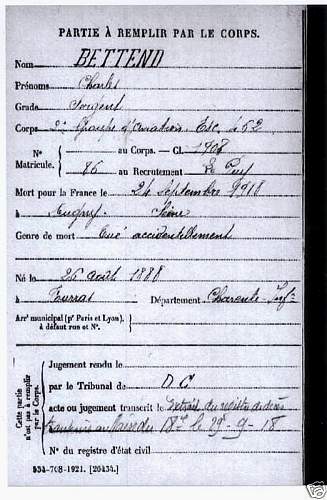 PARTIE À REMPLIR PAR LE CORPS.
Nom BETTEND
Prénoms Charles
Grade Sergent
Corps 2e Groupe d'Aviation Esc. 62
N° Matricule. { au Corps. — Cl. 1908
86 au Recrutement Le Puy
Mort pour la France le 24 septembre 1918
à Seine
Genre de mort tué accidentellement
Né le 26 août 1888
à Département Charente-Infre
Arrt municipal (pr Paris et Lyon), à défaut rue et N°.
Cette partie n'est pas à remplir par le Corps.
Jugement rendu le
par le Tribunal de D.C
acte ou jugement transcrit le Extrait du registre de décès
du 18me le 29-9-18
N° du registre d'état civil
534-708-1921. [26434.]